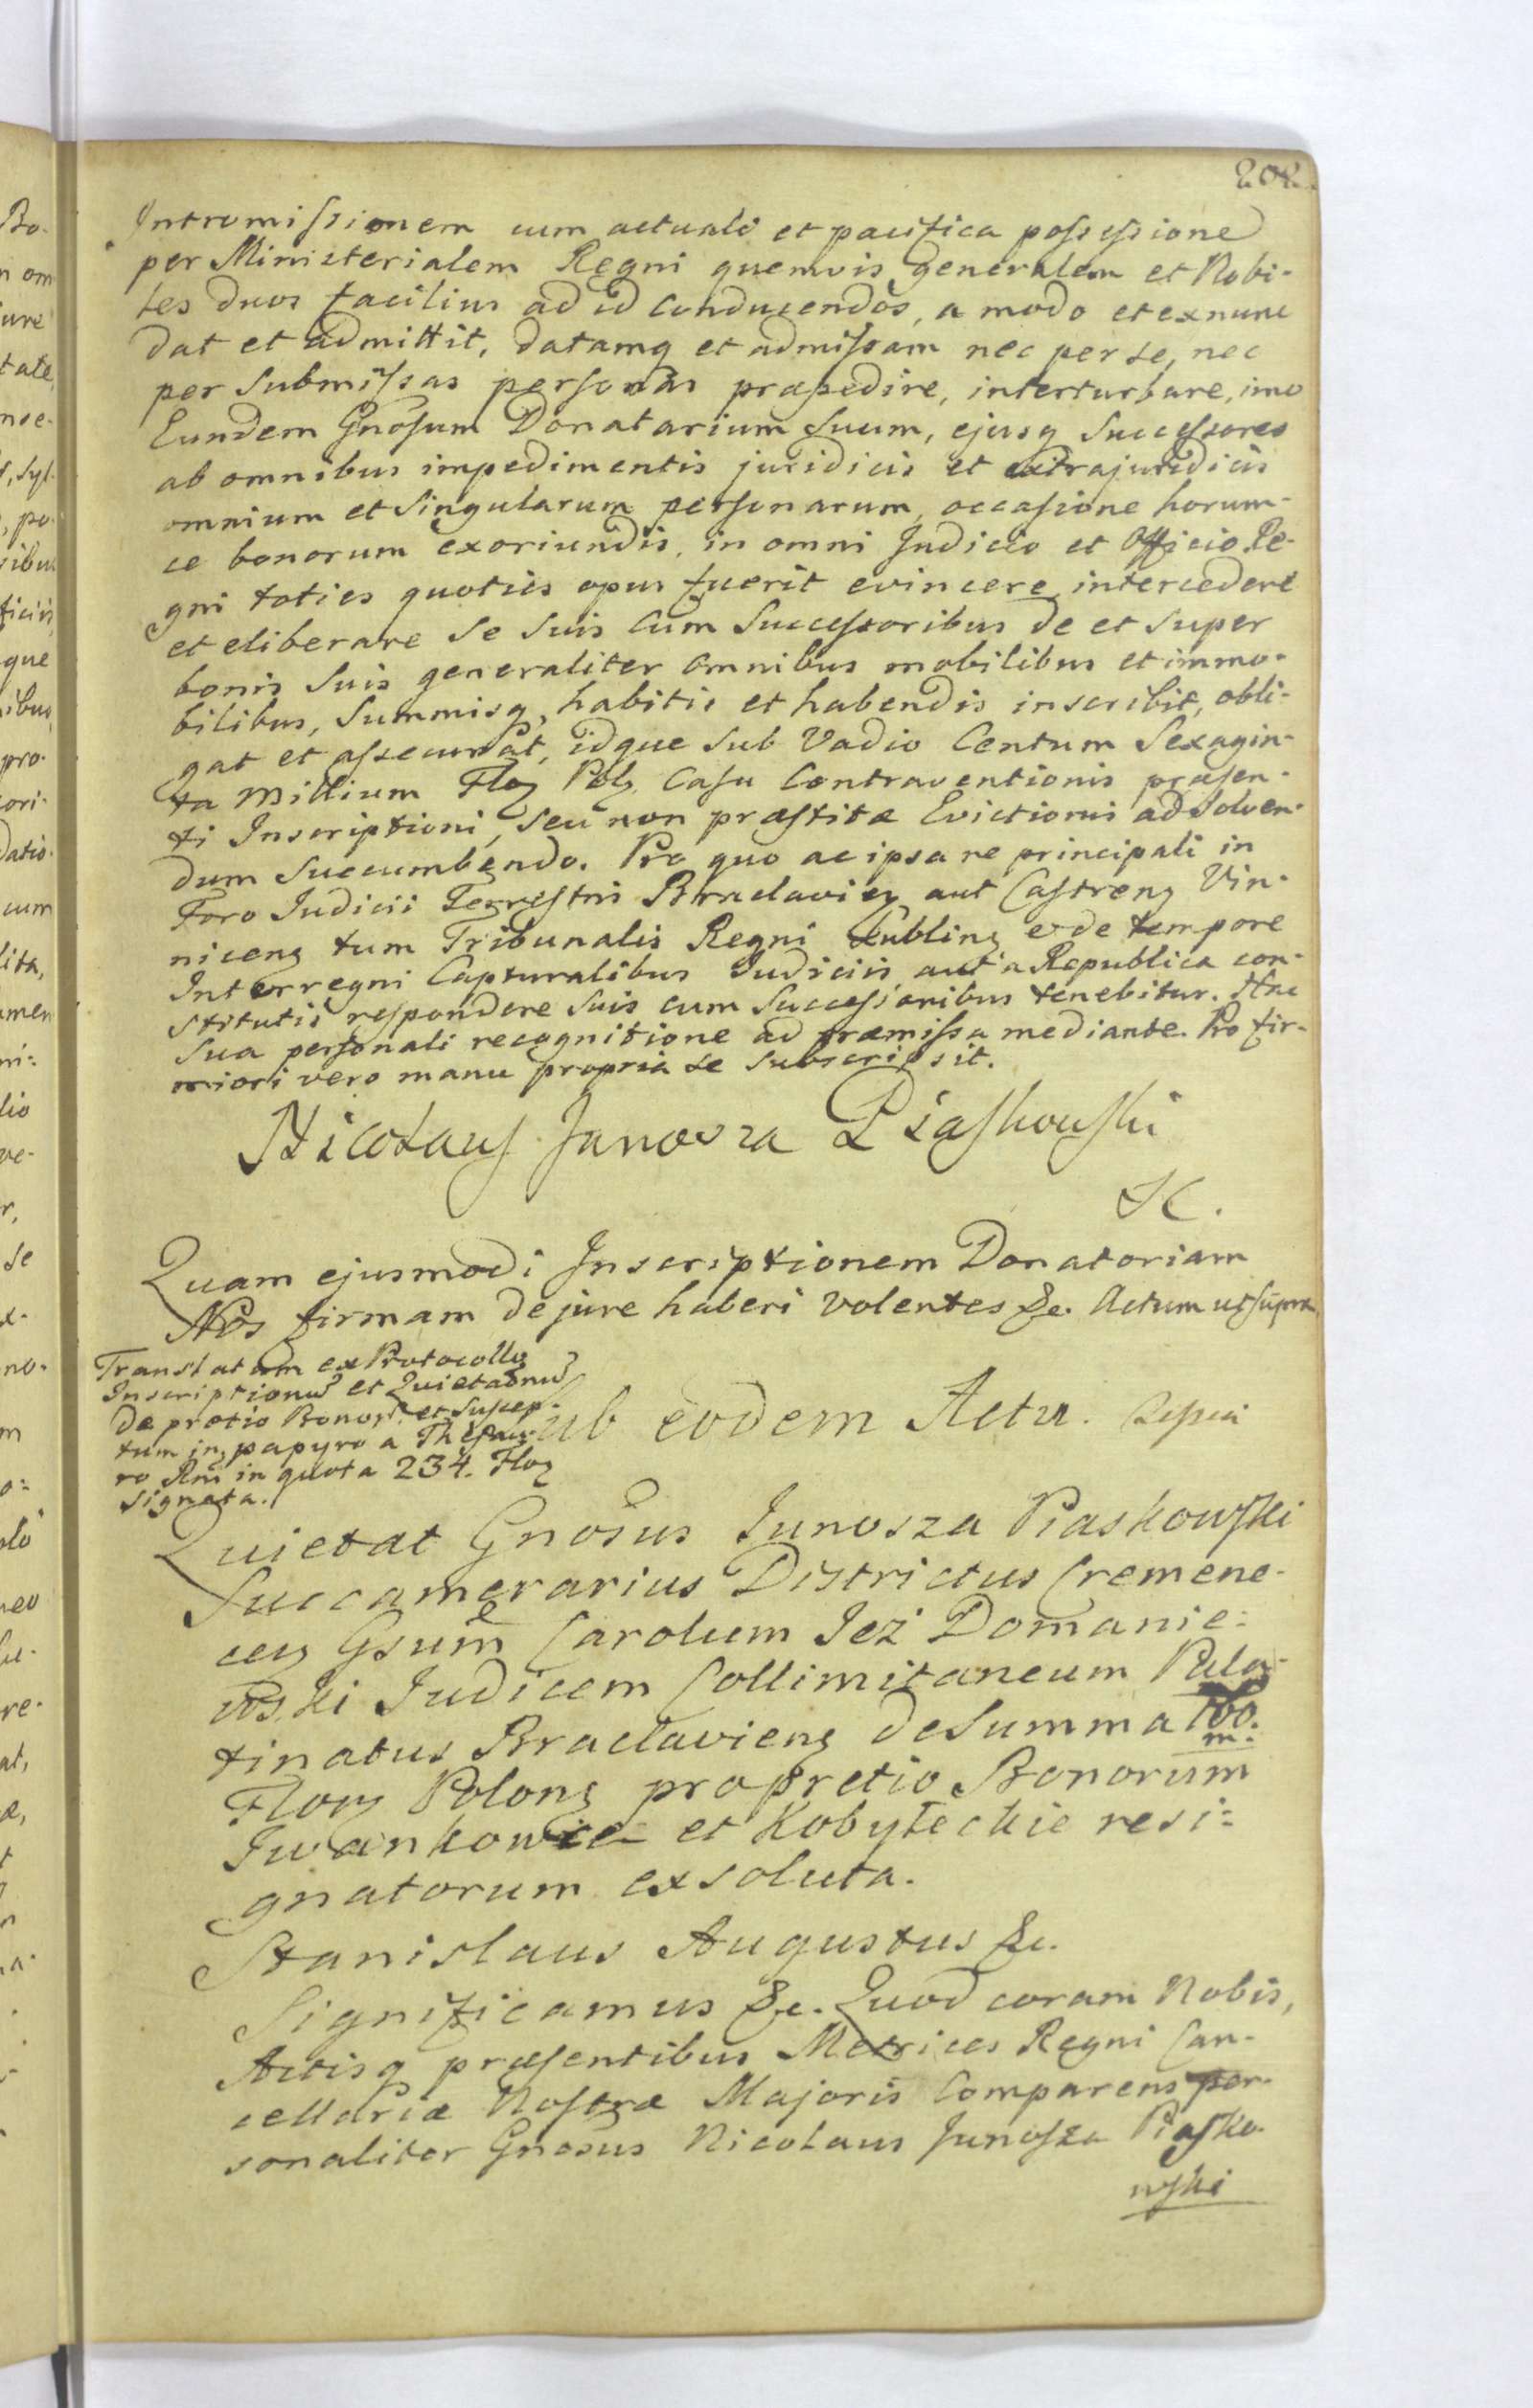 202.
Intromissionem cum actuali et pacifica possessione
per Ministerialem Regni quemvis Generalem et Nobi-
les duos facilius ad id conducendos, a modo et exnunc
dat et admittit, datamq et admissam nec per se, nec
per submissas personas præpedire, interturbare, imo
Eundem Gnosum Donatarium suum, ejusq Successores
ab omnibus impedimentis juridicis et extrajuridicis
omnium et singularum personarum, occasione horum-
ce bonorum exoriundis, in omni Judicio et Officio Re-
gni toties quoties opus fuerit evincere intercedere
et eliberare se suis cum Successoribus de et super
bonis suis generaliter omnibus mobilibus et immo-
bilibus, Summisq, habitis et habendis inscribit, obli-
gat et assecurat, idque sub Vadio Centum Sexagin-
ta Millium Flor Pol, Casu Contraventionis præsen-
ti Inscriptioni, seu non præstitæ Evictionis ad solven-
dum succumbendo. Pro quo ac ipsa re principali in
Foro Judicii Terrestris Braclavien aut Castren Vin-
nicen tum Tribunalis Regni Lublin, vde tempore
Interregni Capturalibus Judiciis, aut a Republica con-
stitutis respondere suis cum Successoribus tenebitur. Hac
sua personali recognitione ad præmissa mediante. Pro fir-
miori vero manu propria se subscripsit.
Nicolaus Junosza Piaskowski
Quam ejusmodi Inscriptionem Donatoriam
Nos firmam de jure haberi volentes &c. Actum ut supra
Translatum ex Protocollo
Inscriptionu et Quietaonu
de prætio Bonor et suscep-
tum in papyro a Thesau-
ro Rni in quota 234. Flor
signata.
Sub eodem Actu.
Quietat Gnosus Junosza Piaskowski
Succamerarius Districtus Cremene-
cen Gsum Carolum Jeż Domanie-
wski Judicem Collimitaneum Pala-
tinatus Braclavien de Summa 160.
m.
Flor Polon pro pretio Bonorum
Iwankowce et Kobyleckie resi-
gnatorum exsoluta.
Stanislaus Augustus &c.
Significamus &c. Quod coram Nobis,
Actisq præsentibus Metrices Regni Can-
cellariæ Nostræ Majoris Comparens per-
sonaliter Gnosus Nicolaus Junosza Piasko-
wski